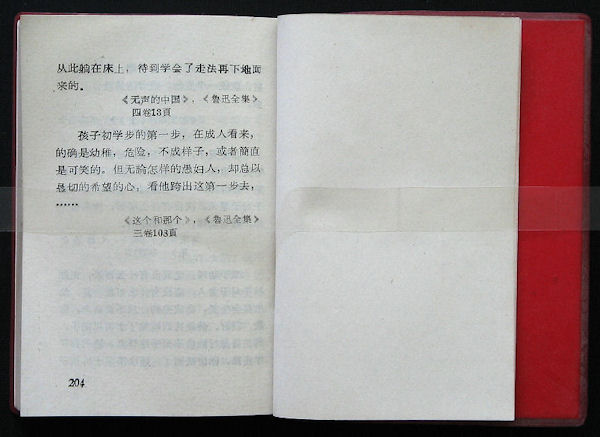 从此躺在床上，待到学会了走法再下地面
来的。
《无声的中国》，《鲁迅全集》
四卷13頁
孩子初学步的第一步，在成人看来，
的确是幼稚，危险，不成样子，或者簡直
是可笑的。但无論怎样的愚妇人，却总以
恳切的希望的心，看他跨出这第一步去，
……
《这个和那个》，《鲁迅全集》
三卷103頁
204